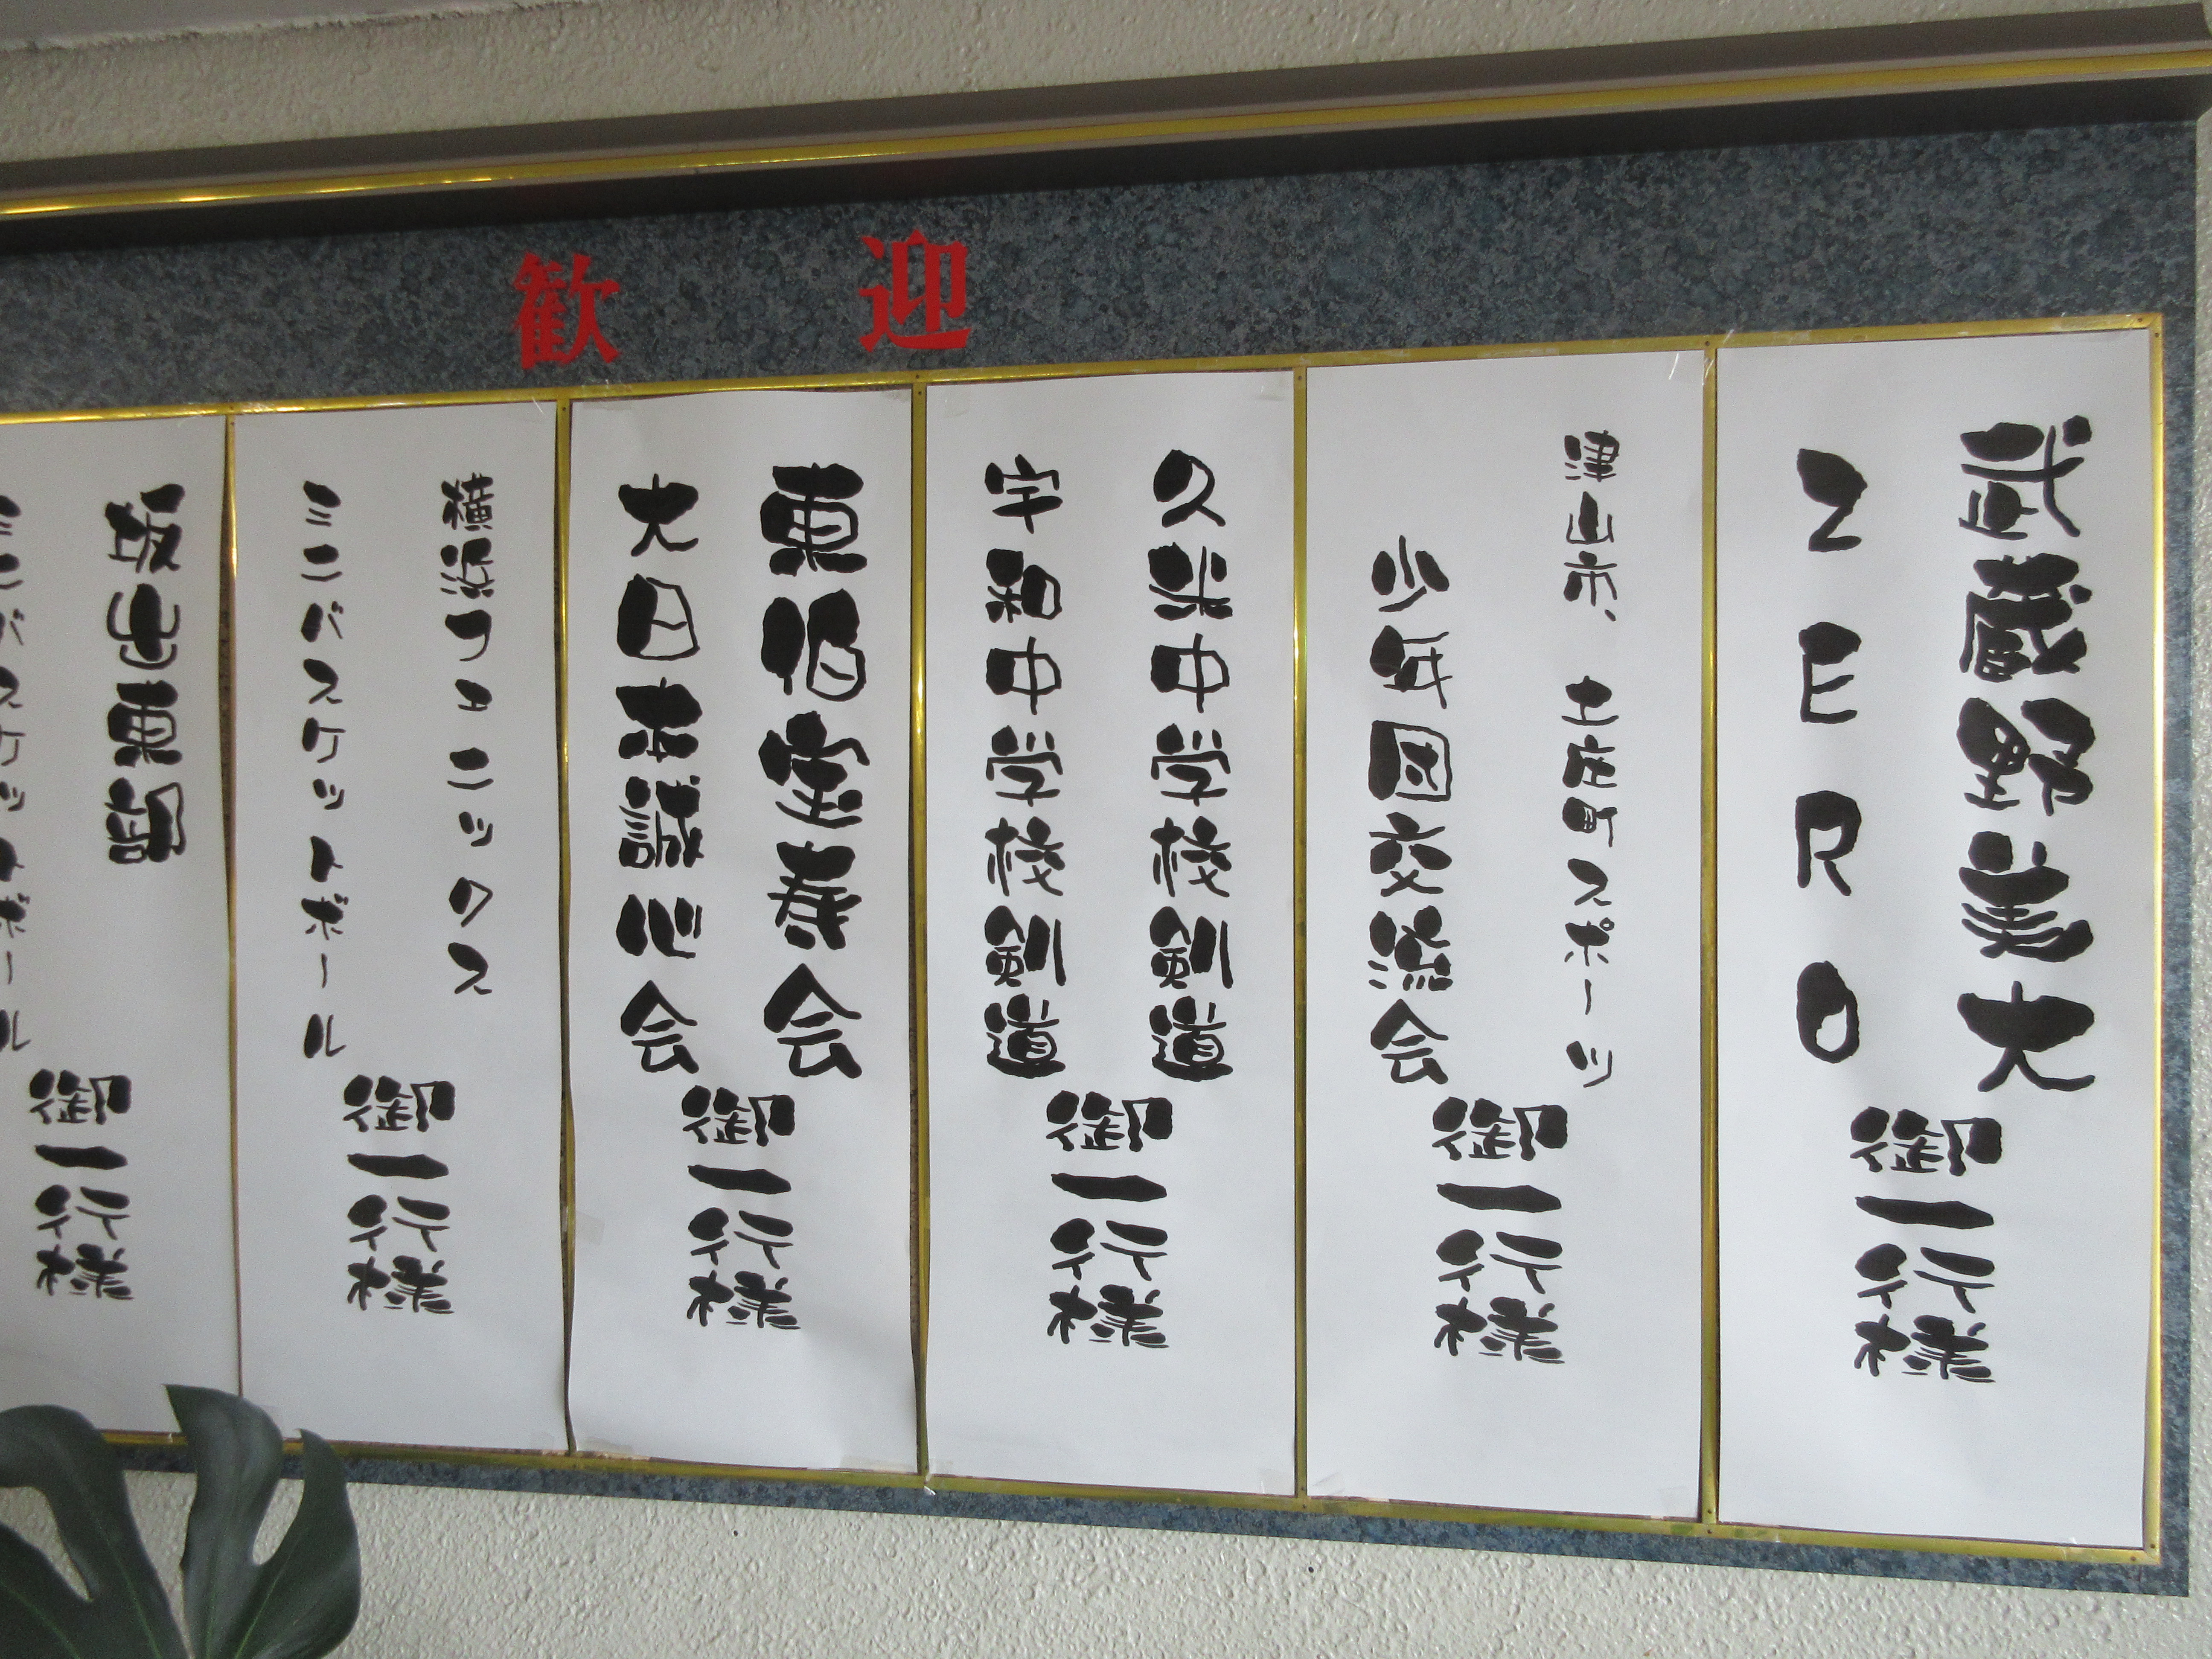 歓迎
武蔵野美大
ZERO
御一行様
津山市、土庄町スポーツ
少年団交流会
御一行様
久米中学校剣道
宇和中学校剣道
御一行様
東伯宝寿会
大日本誠心会
御一行様
横浜フェニックス
ミニバスケットボール
御一行様
坂出東部
ミニバスケットボール
御一行様